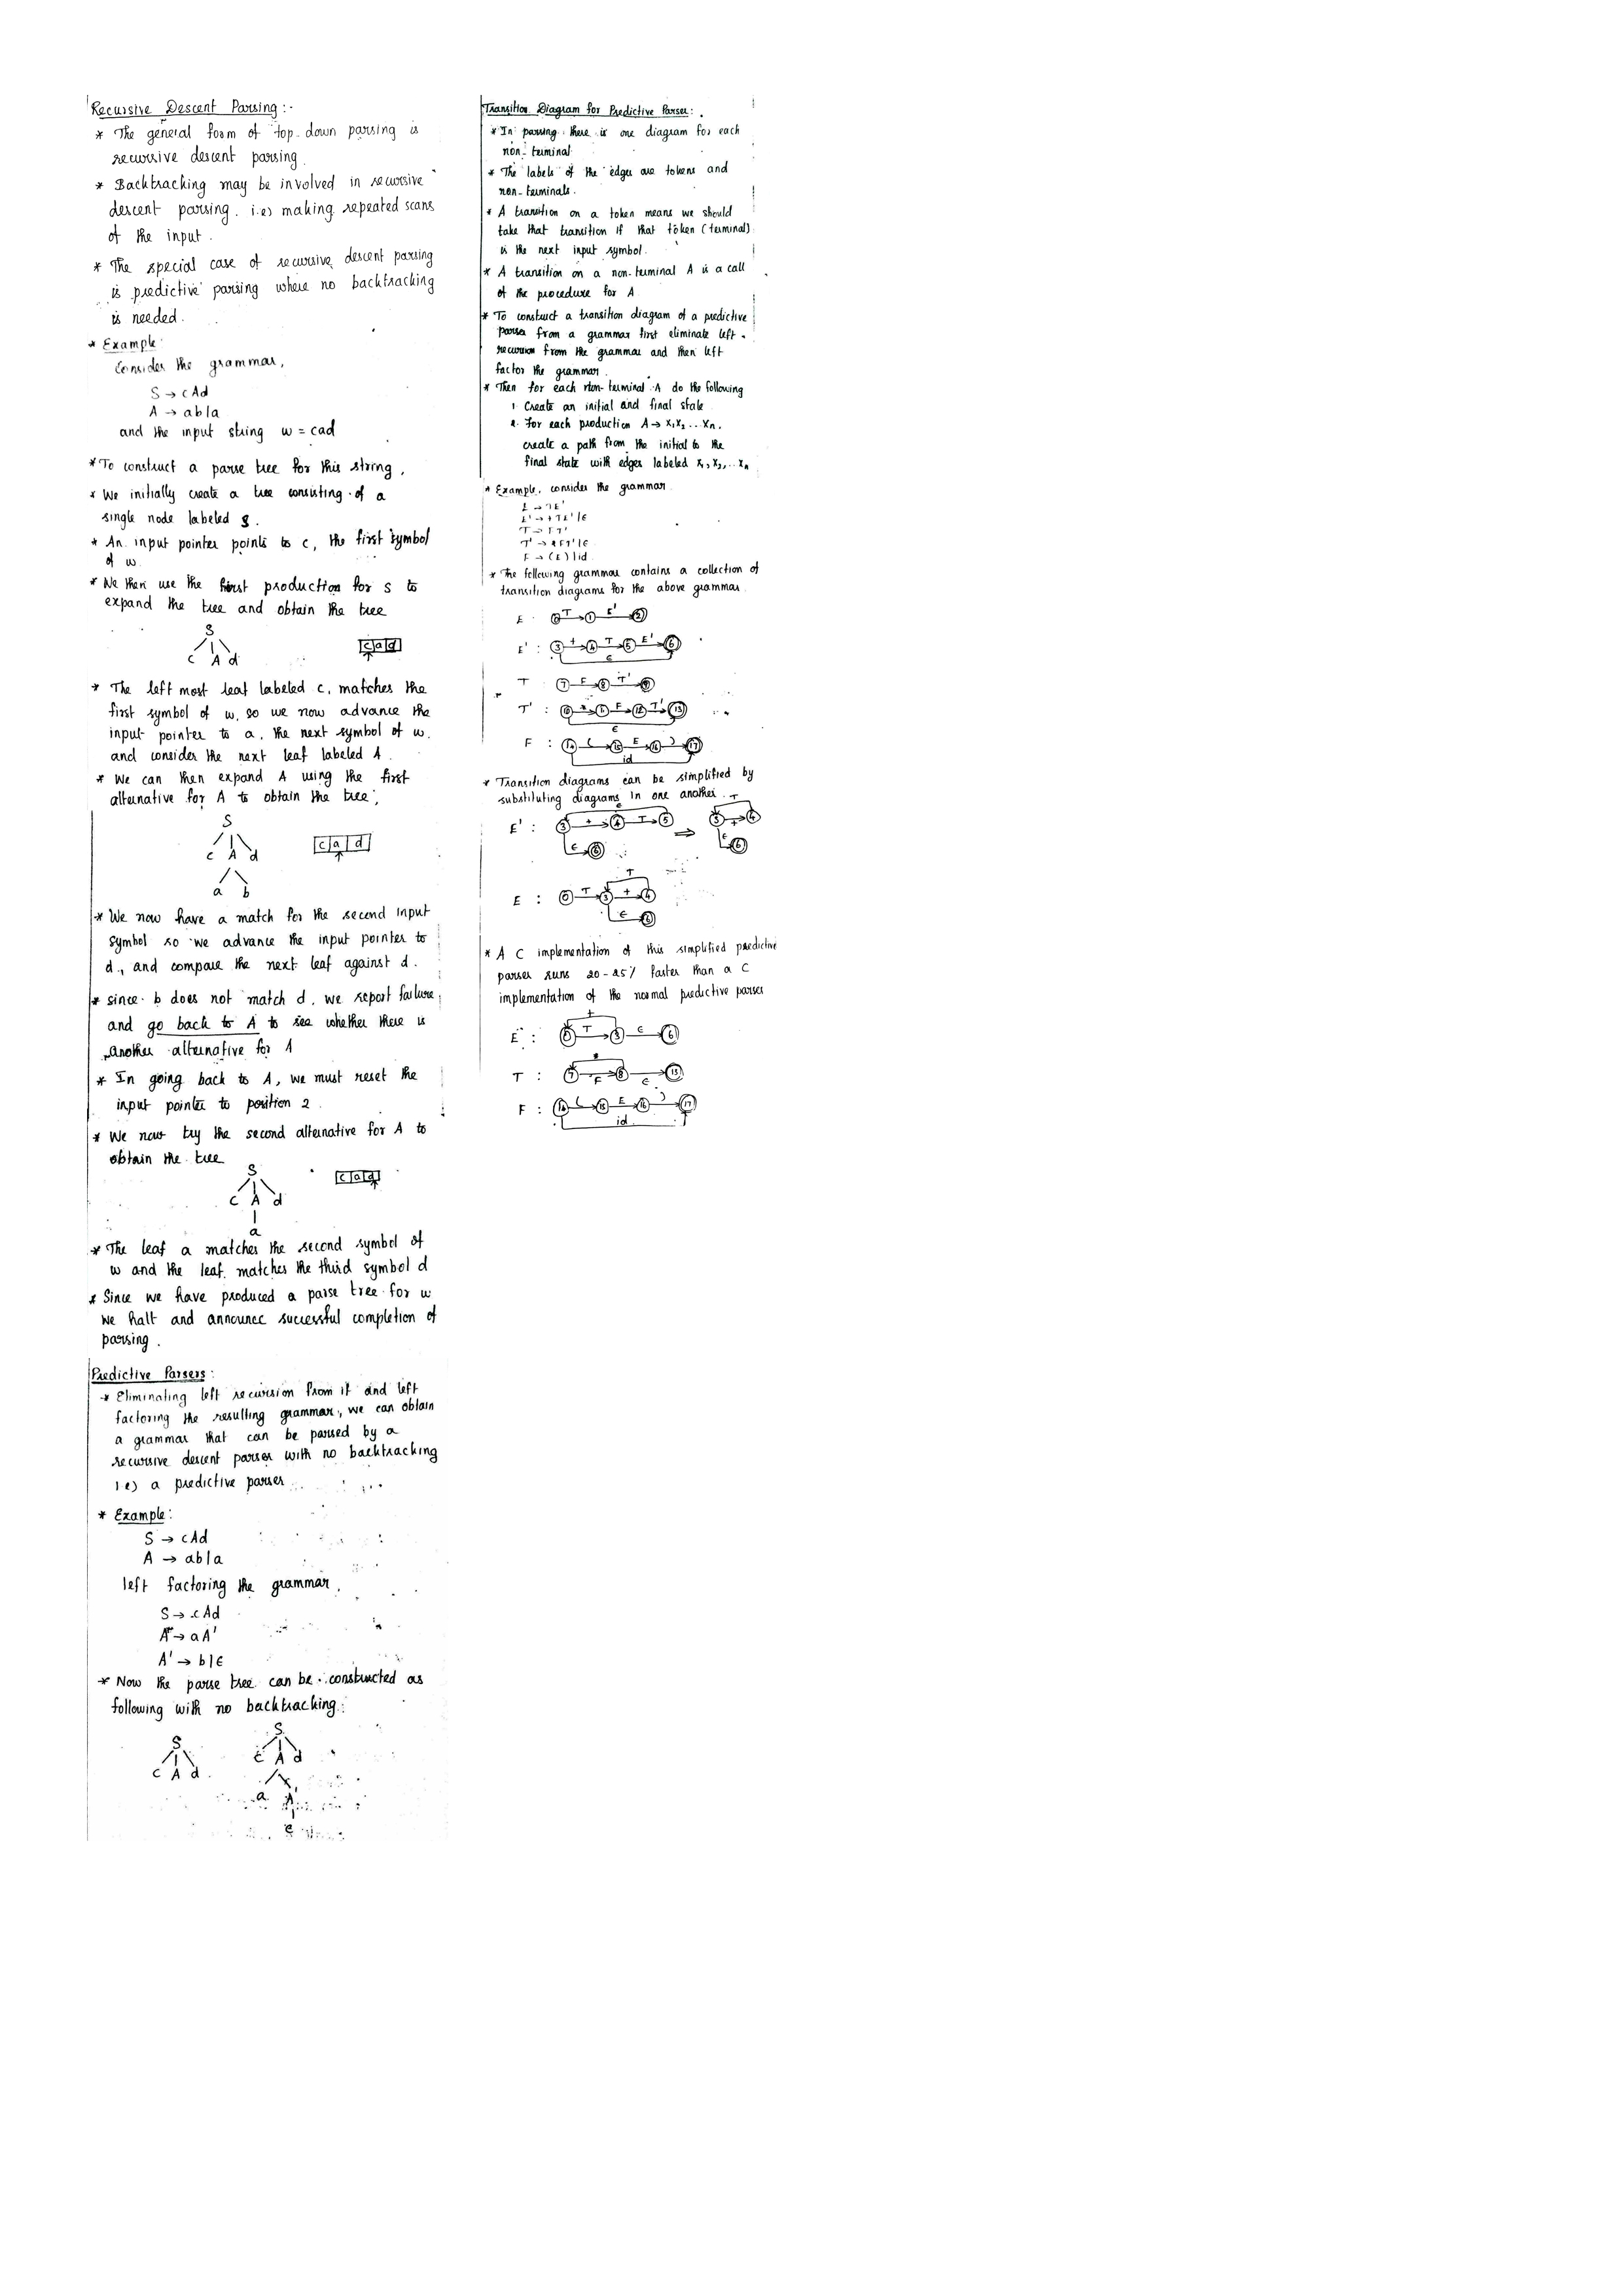 Recursive Descent Parsing :-
* The general form of top-down parsing is
recursive descent parsing.
* Backtracking may be involved in recursive
descent parsing. i.e) making repeated scans
of the input.
* The special case of recursive descent parsing
is predictive parsing where no backtracking
is needed.
* Example:
Consider the grammar,
S → cAd
A → ab|a
and the input string w = cad
* To construct a parse tree for this string,
* We initially create a tree consisting of a
single node labeled S.
* An input pointer points to c, the first symbol
of w.
* We then use the first production for S to
expand the tree and obtain the tree
S
c A d
c|a|d
* The left most leaf labeled c, matches the
first symbol of w, so we now advance the
input pointer to a, the next symbol of w.
and consider the next leaf labeled A.
* We can then expand A using the first
alternative for A to obtain the tree;
S
c A d
c|a|d
a b
* We now have a match for the second input
symbol so we advance the input pointer to
d., and compare the next leaf against d.
* since b does not match d, we report failure,
and go back to A to see whether there is
another alternative for A
* In going back to A, we must reset the
input pointer to position 2.
* We now try the second alternative for A to
obtain the tree
S
c|a|d
c A d
a
* The leaf a matches the second symbol of
w and the leaf matches the third symbol d
* Since we have produced a parse tree for w
we halt and announce successful completion of
parsing.
Predictive Parsers:
* Eliminating left recursion from it and left
factoring the resulting grammar, we can obtain
a grammar that can be parsed by a
recursive descent parser with no backtracking
i.e) a predictive parser
* Example:
S → cAd
A → ab|a
left factoring the grammar,
S → cAd
A → aA'
A' → b|ϵ
* Now the parse tree can be constructed as
following with no backtracking:
S S
c A d c A d
a
ϵ
Transition Diagram for Predictive Parser:
* In parsing there is one diagram for each
non-terminal
* The labels of the edges are tokens and
non-terminals.
* A transition on a token means we should
take that transition if that token (terminal)
is the next input symbol.
* A transition on a non-terminal A is a call
of the procedure for A
* To construct a transition diagram of a predictive
parser from a grammar first eliminate left
recursion from the grammar and then left
factor the grammar
* Then for each non-terminal A do the following
1. Create an initial and final state
2. For each production A → X1X2...Xn,
create a path from the initial to the
final state with edges labeled X1, X2,...Xn
* Example, consider the grammar
E → TE'
E' → +TE'|ϵ
T → FT'
T' → *FT'|ϵ
F → (E)|id
* The following grammar contains a collection of
transition diagrams for the above grammar
E : 0 T 1 E' 2
E' : 3 + 4 T 5 E' 6
ϵ
T 7 F 8 T' 9
T' : 10 * 11 F 12 T' 13
ϵ
F : 14 ( 15 E 16 ) 17
id
* Transition diagrams can be simplified by
substituting diagrams in one another.
ϵ T
E' : 3 + 4 T 5 ⇒ 3 + 4
ϵ 6 ϵ 6
T
E : 0 T 3 + 4
ϵ 6
* A C implementation of this simplified predictive
parser runs 20-25% faster than a C
implementation of the normal predictive parser
+
E : 0 T 3 ϵ 6
*
T : 7 F 8 ϵ 13
F : 14 ( 15 E 16 ) 17
id